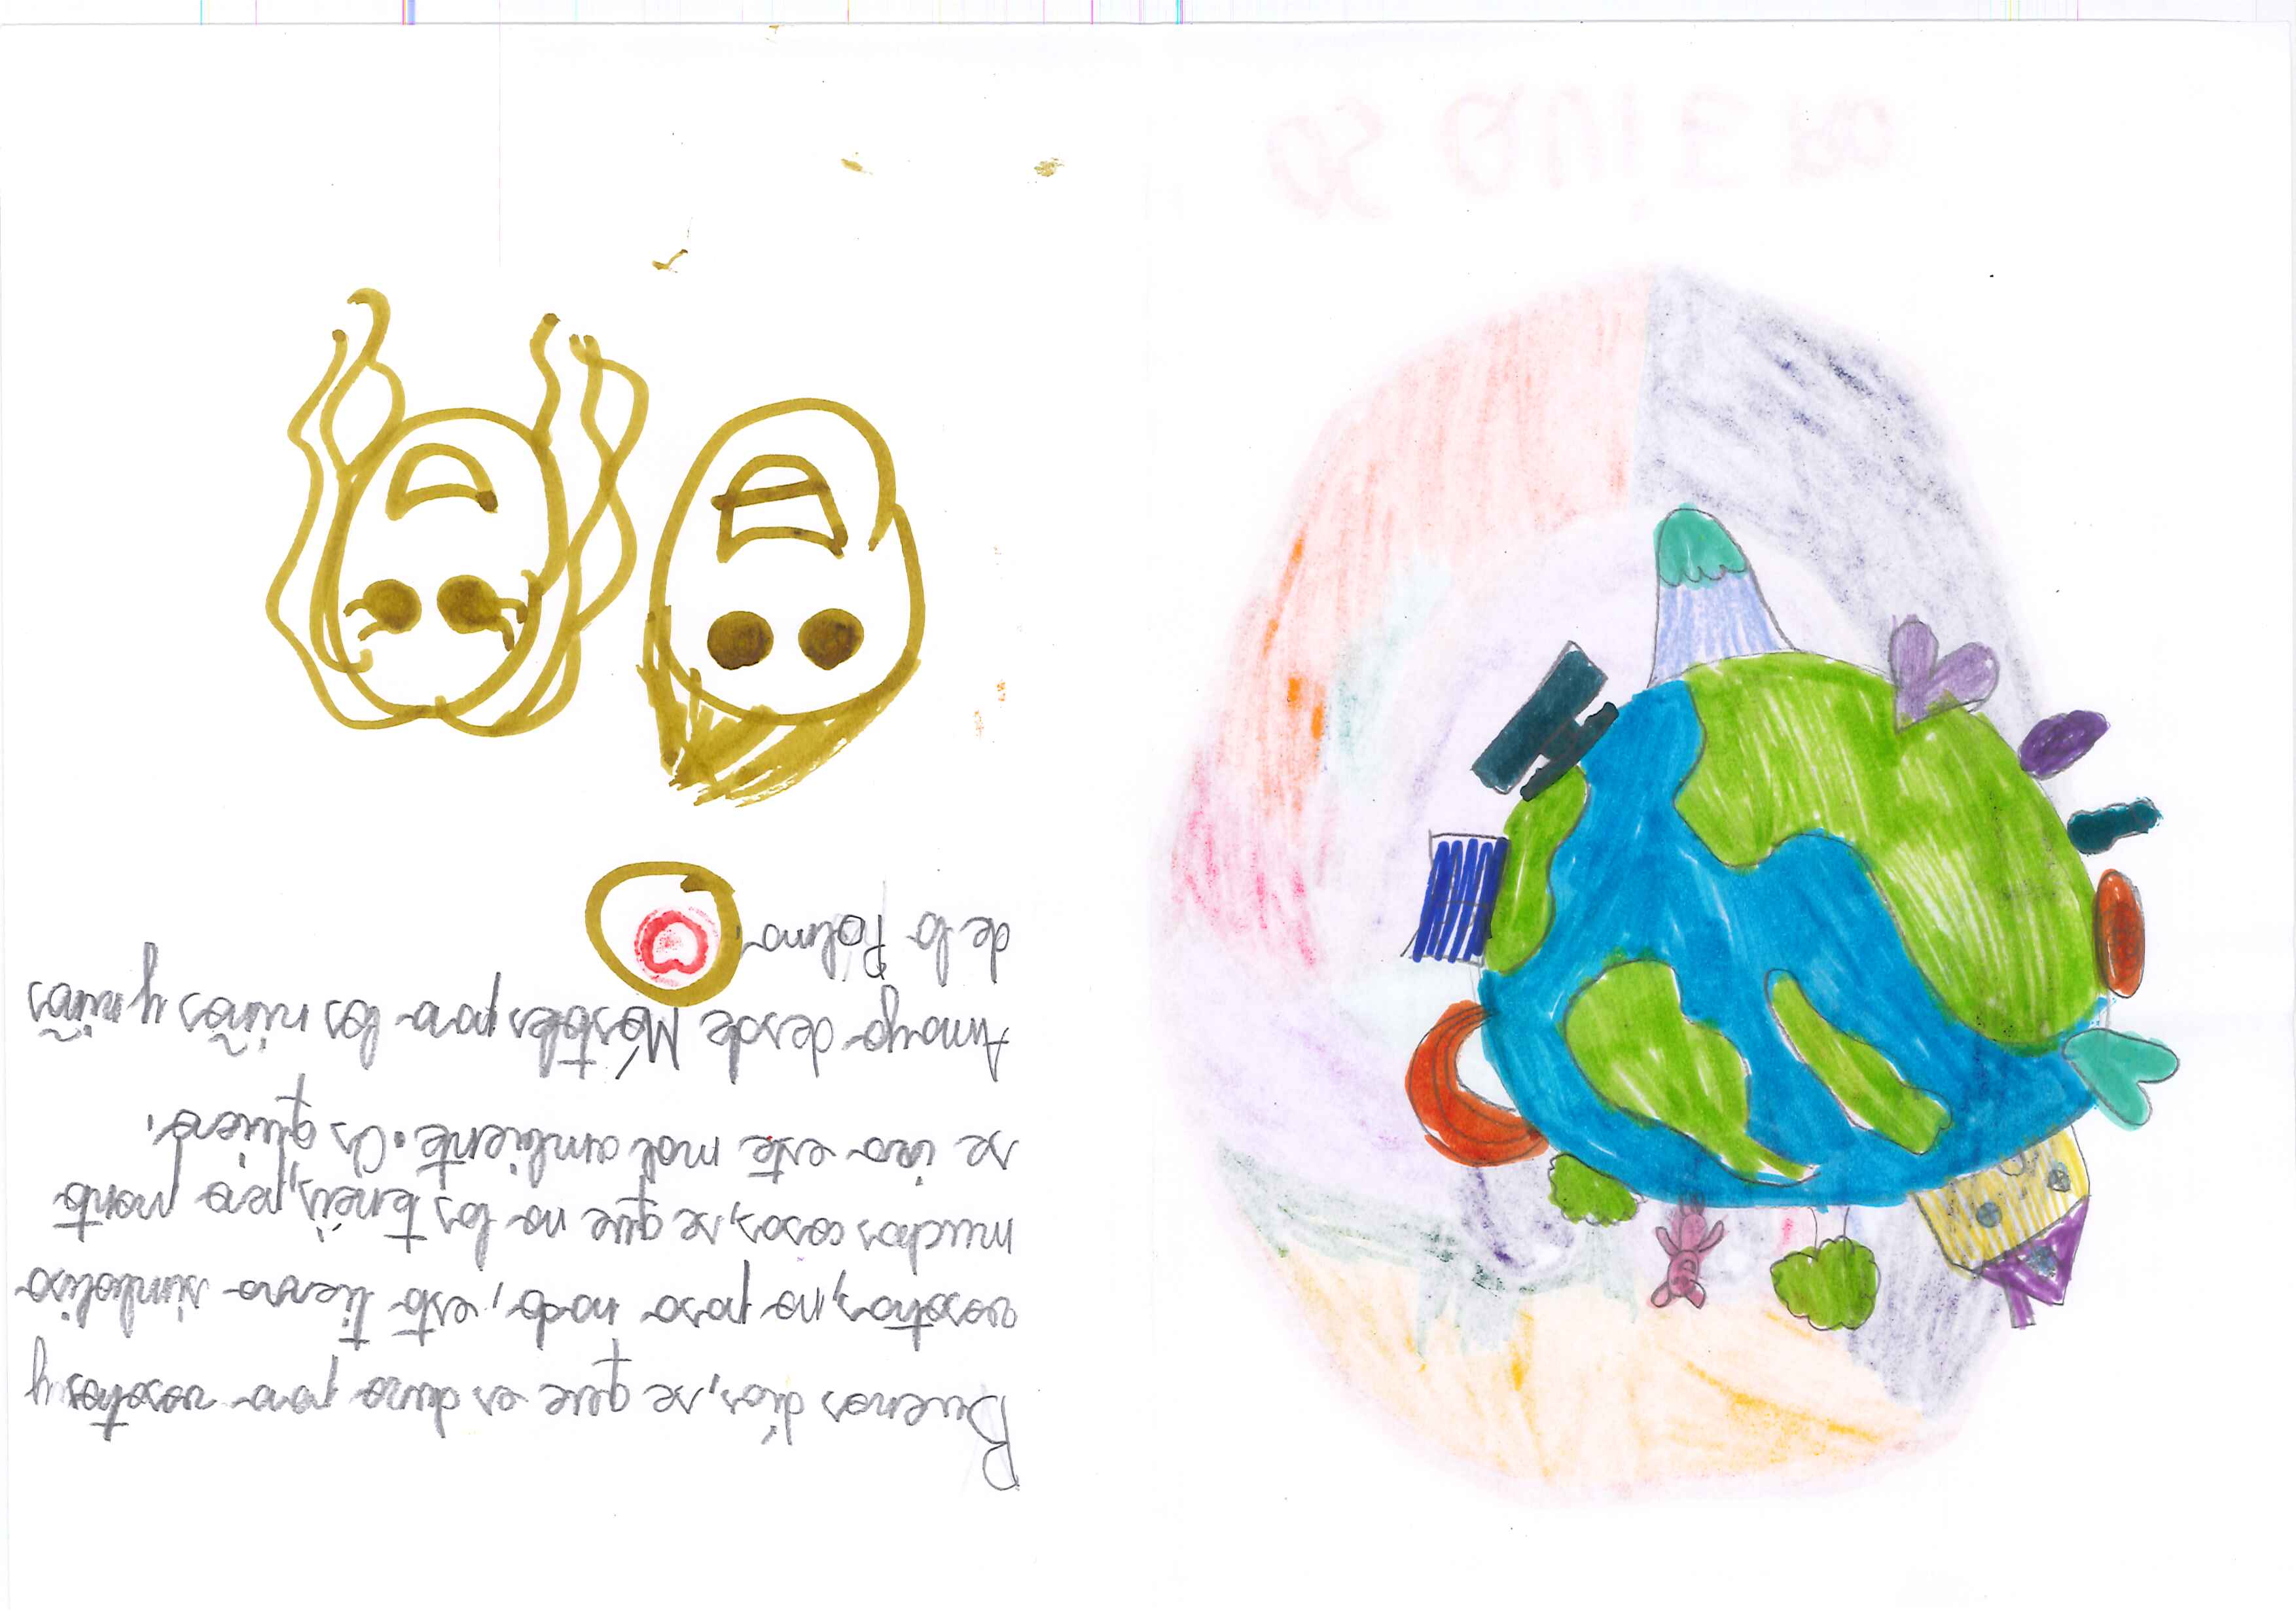 Buenos días, se que es duro para vosotros y
vosotras, no pasa nada, esta tierra simboliza
muchas cosas, se que no las tenéis, pero pronto
se ira este mal ambiente. Os quiero.
Amaya desde Móstoles para los niños y niñas
de la Palma
OS QUIERO